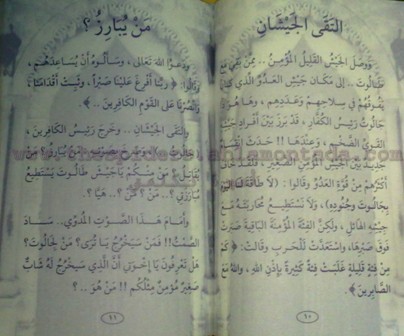 التقى الجيشان
ووصل الجيش القليل المؤمن .. من بقي مع
طالوت .. إلى مكان جيش العدو الذي كان
يفوقهم في سلاحهم وعددهم ، وها هو
جالوت رئيس الكفار ، قد برز بين أفراد جيشه
القوي الضخم ، وعندها !! حدث انقسام
جديد بين الجيش المؤمن الصغير
أكثرهم من قوة العدو وقالوا : ﴿ لا طاقة لنا اليوم
بجالوت وجنوده ﴾ ، ولا نستطيع محاربته مع
جيشه الهائل ، ولكن الفئة المؤمنة الباقية صبرت
فوق صبرها ، واستعدت للحرب وقالت : ﴿ كم
من فئة قليلة غلبت فئة كثيرة بإذن الله ، والله مع
الصابرين ﴾ .
١٠
من يبارز ؟
ودعوا الله تعالى ، وسألوه أن يساعدهم ،
وقالوا : ﴿ ربنا أفرغ علينا صبراً ، وثبت أقدامنا ،
وانصرنا على القوم الكافرين .. ﴾ .
والتقى الجيشان .. وخرج رئيس الكافرين ،
جالوت من يبارز ؟ من
يقاتل ؟ من منكم يا جيش طالوت يستطيع
مبارزتي .. ؟ من ؟ .. هيا ؟
وأمام هذا الصوت المدوي .. ساد
الصمت !! فمن سيخرج يا ترى ؟ من لجالوت ؟
هل تعرفون يا إخوتي أن الذي سيخرج له شاب
صغير مؤمن مثلكم !! من هو .. ؟
١١